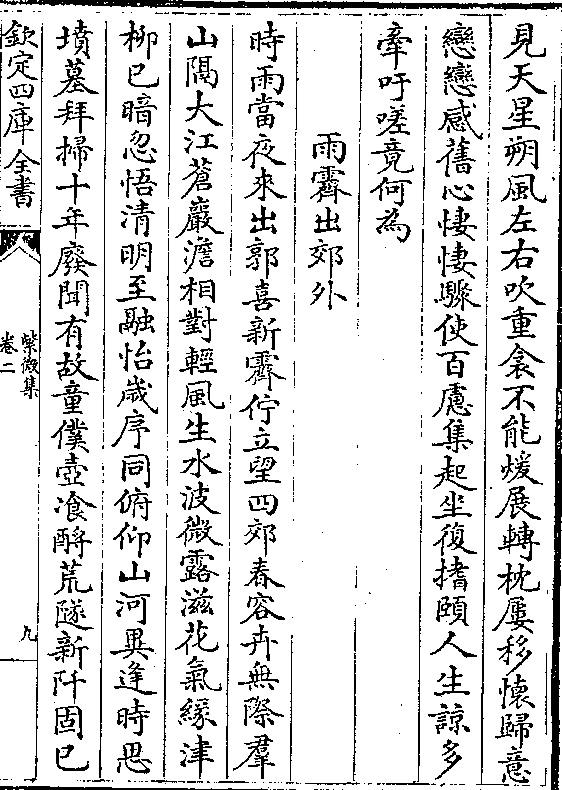 見天星朔風左右吹重衾不能煖展轉枕屢移懷歸意
戀戀感舊心悽悽驟使百慮集起坐復搘頤人生諒多
牽吁嗟竟何為
雨霽出郊外
時雨當夜來出郭喜新霽佇立望四郊春容卉無際羣
山隅大江蒼巖澹相對輕風生水波微露滋花氣緣津
柳已暗忽悟清明至融怡歲序同俯仰山河異逢時思
墳墓拜掃十年廢聞有故童僕壺飡酹荒隧新阡固已
欽定四庫全書
紫微集
卷二
九